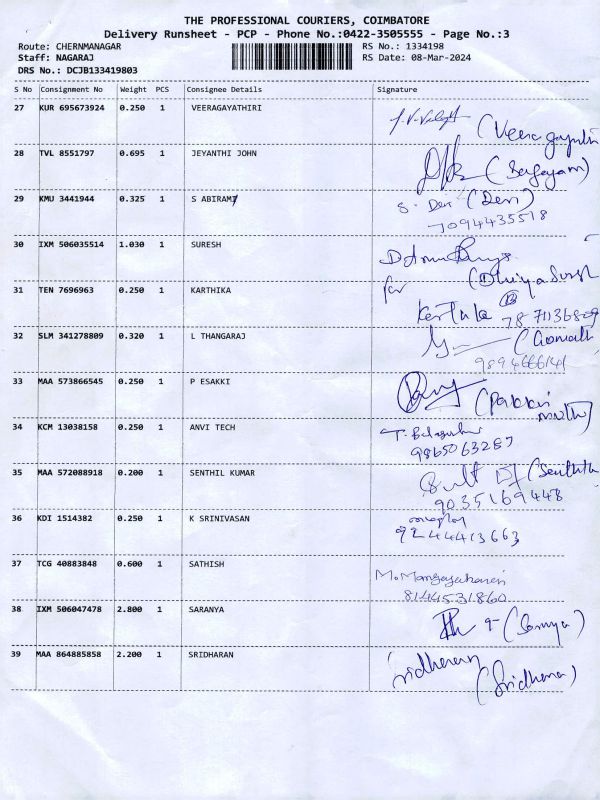 THE PROFESSIONAL COURIERS, COIMBATORE
Delivery Runsheet - PCP - Phone No.:0422-3505555 - Page No.:3
Route: CHERNMANAGAR RS No.: 1334198
Staff: NAGARAJ RS Date: 08-Mar-2024
DRS No.: DCJB133419803
S No Consignment No Weight PCS Consignee Details Signature
27 KUR 695673924 0.250 1 VEERAGAYATHIRI
28 TVL 8551797 0.695 1 JEYANTHI JOHN
29 KMU 3441944 0.325 1 S ABIRAMI S. Devi (Devi)
7094435518
30 IXM 506035514 1.030 1 SURESH
for
31 TEN 7696963 0.250 1 KARTHIKA
32 SLM 341278809 0.320 1 L THANGARAJ
9894666141
33 MAA 573866545 0.250 1 P ESAKKI
34 KCM 13038158 0.250 1 ANVI TECH
9865063287
35 MAA 572088918 0.200 1 SENTHIL KUMAR
9035169448
36 KDI 1514382 0.250 1 K SRINIVASAN
9244413663
37 TCG 40883848 0.600 1 SATHISH
8144531860
38 IXM 506047478 2.800 1 SARANYA
39 MAA 864885858 2.200 1 SRIDHARAN Sridharan